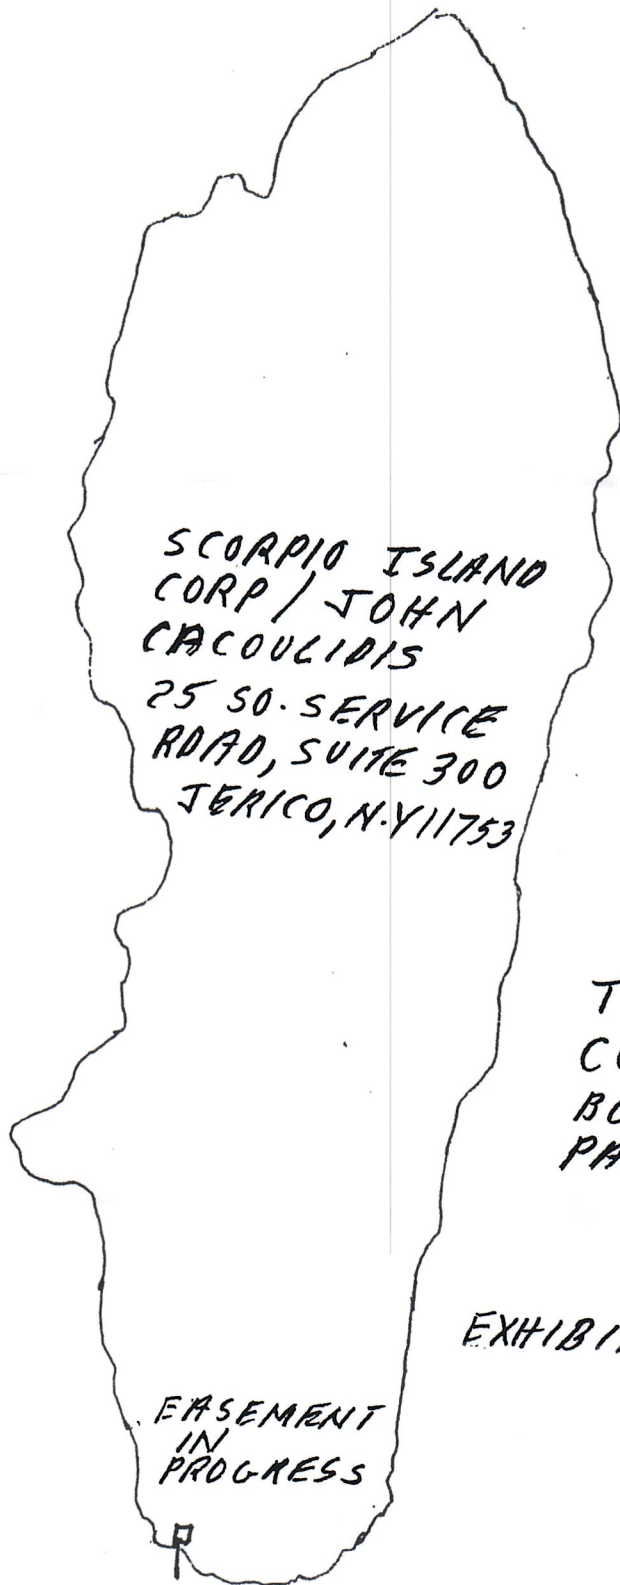 SCORPIO ISLAND
CORP / JOHN
CACOULIDIS
25 SO. SERVICE
ROAD, SUITE 300
JERICO, N.Y 11753
EASEMENT
IN
PROGRESS